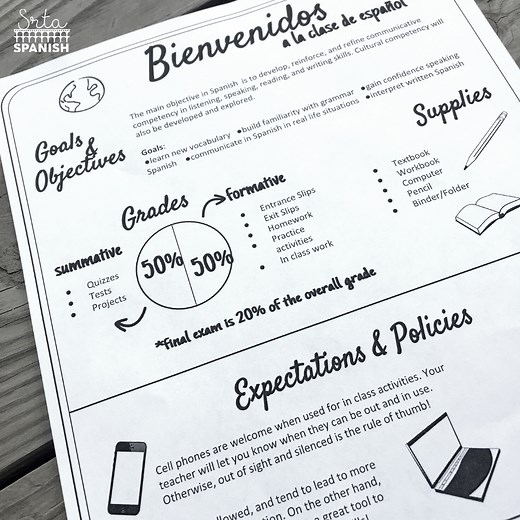 Srta
SPANISH
Bienvenidos
a la clase de español
The main objective in Spanish is to develop, reinforce, and refine communicative
competency in listening, speaking, reading, and writing skills. Cultural competency will
also be developed and explored.
Goals:
•learn new vocabulary •build familiarity with grammar •gain confidence speaking
Spanish •communicate in Spanish in real life situations •interpret written Spanish
Goals
&
Objectives
Supplies
• Textbook
• Workbook
• Computer
• Pencil
• Binder/Folder
Grades
formative
• Entrance Slips
• Exit Slips
• Homework
• Practice
activities
• In class work
summative
• Quizzes
• Tests
• Projects
50% 50%
*final exam is 20% of the overall grade
Expectations & Policies
Cell phones are welcome when used for in class activities. Your
teacher will let you know when they can be out and in use.
Otherwise, out of sight and silenced is the rule of thumb!
and tend to lead to more
On the other hand,
a great tool to